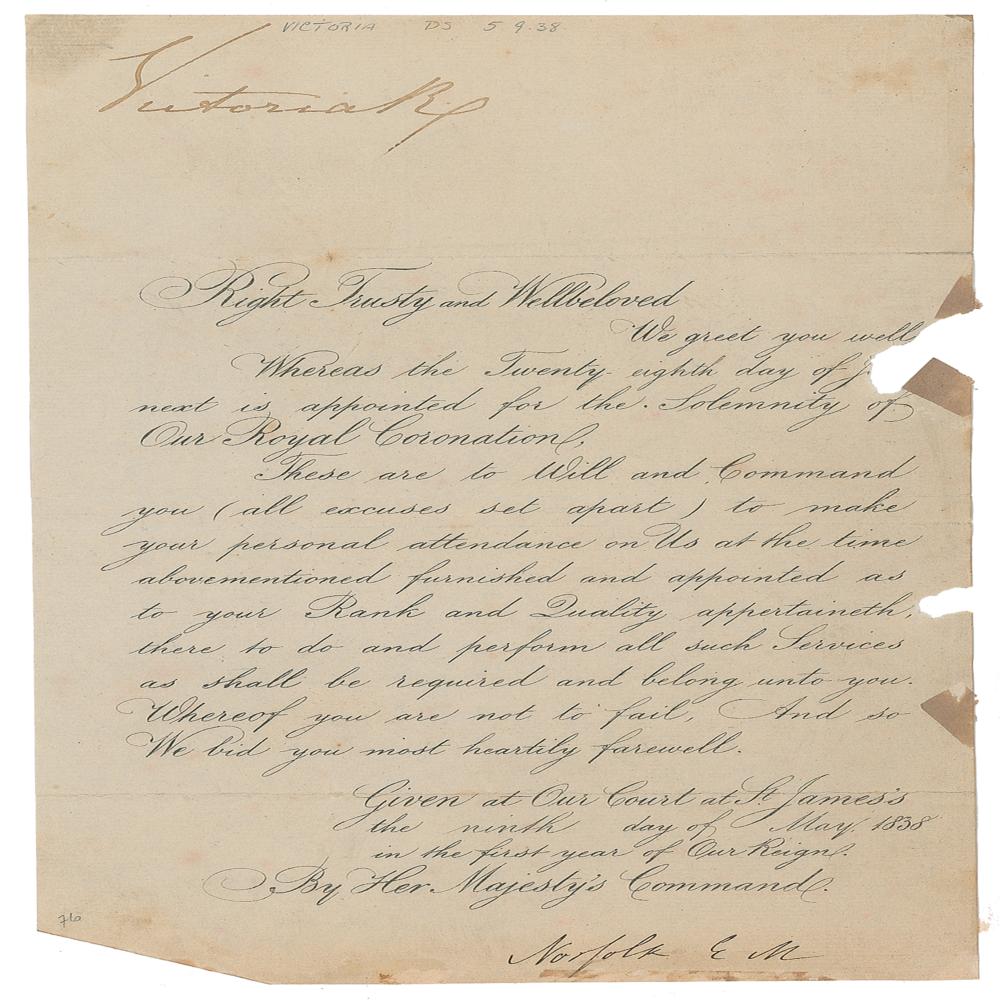 VICTORIA DS 5 9.38
Victoria R
Right Trusty and Wellbeloved
We greet you well
Whereas the Twenty-eighth day of J
next is appointed for the Solemnity of
Our Royal Coronation,
These are to Will and Command
you (all excuses set apart) to make
your personal attendance on Us at the time
abovementioned furnished and appointed as
to your Rank and Quality appertaineth,
there to do and perform all such Services
as shall be required and belong unto you.
Whereof you are not to fail, And so
We bid you most heartily farewell.
Given at Our Court at St. James's
the ninth day of May. 1838
in the first year of Our Reign.
By Her Majesty's Command.
Norfolk E M
76